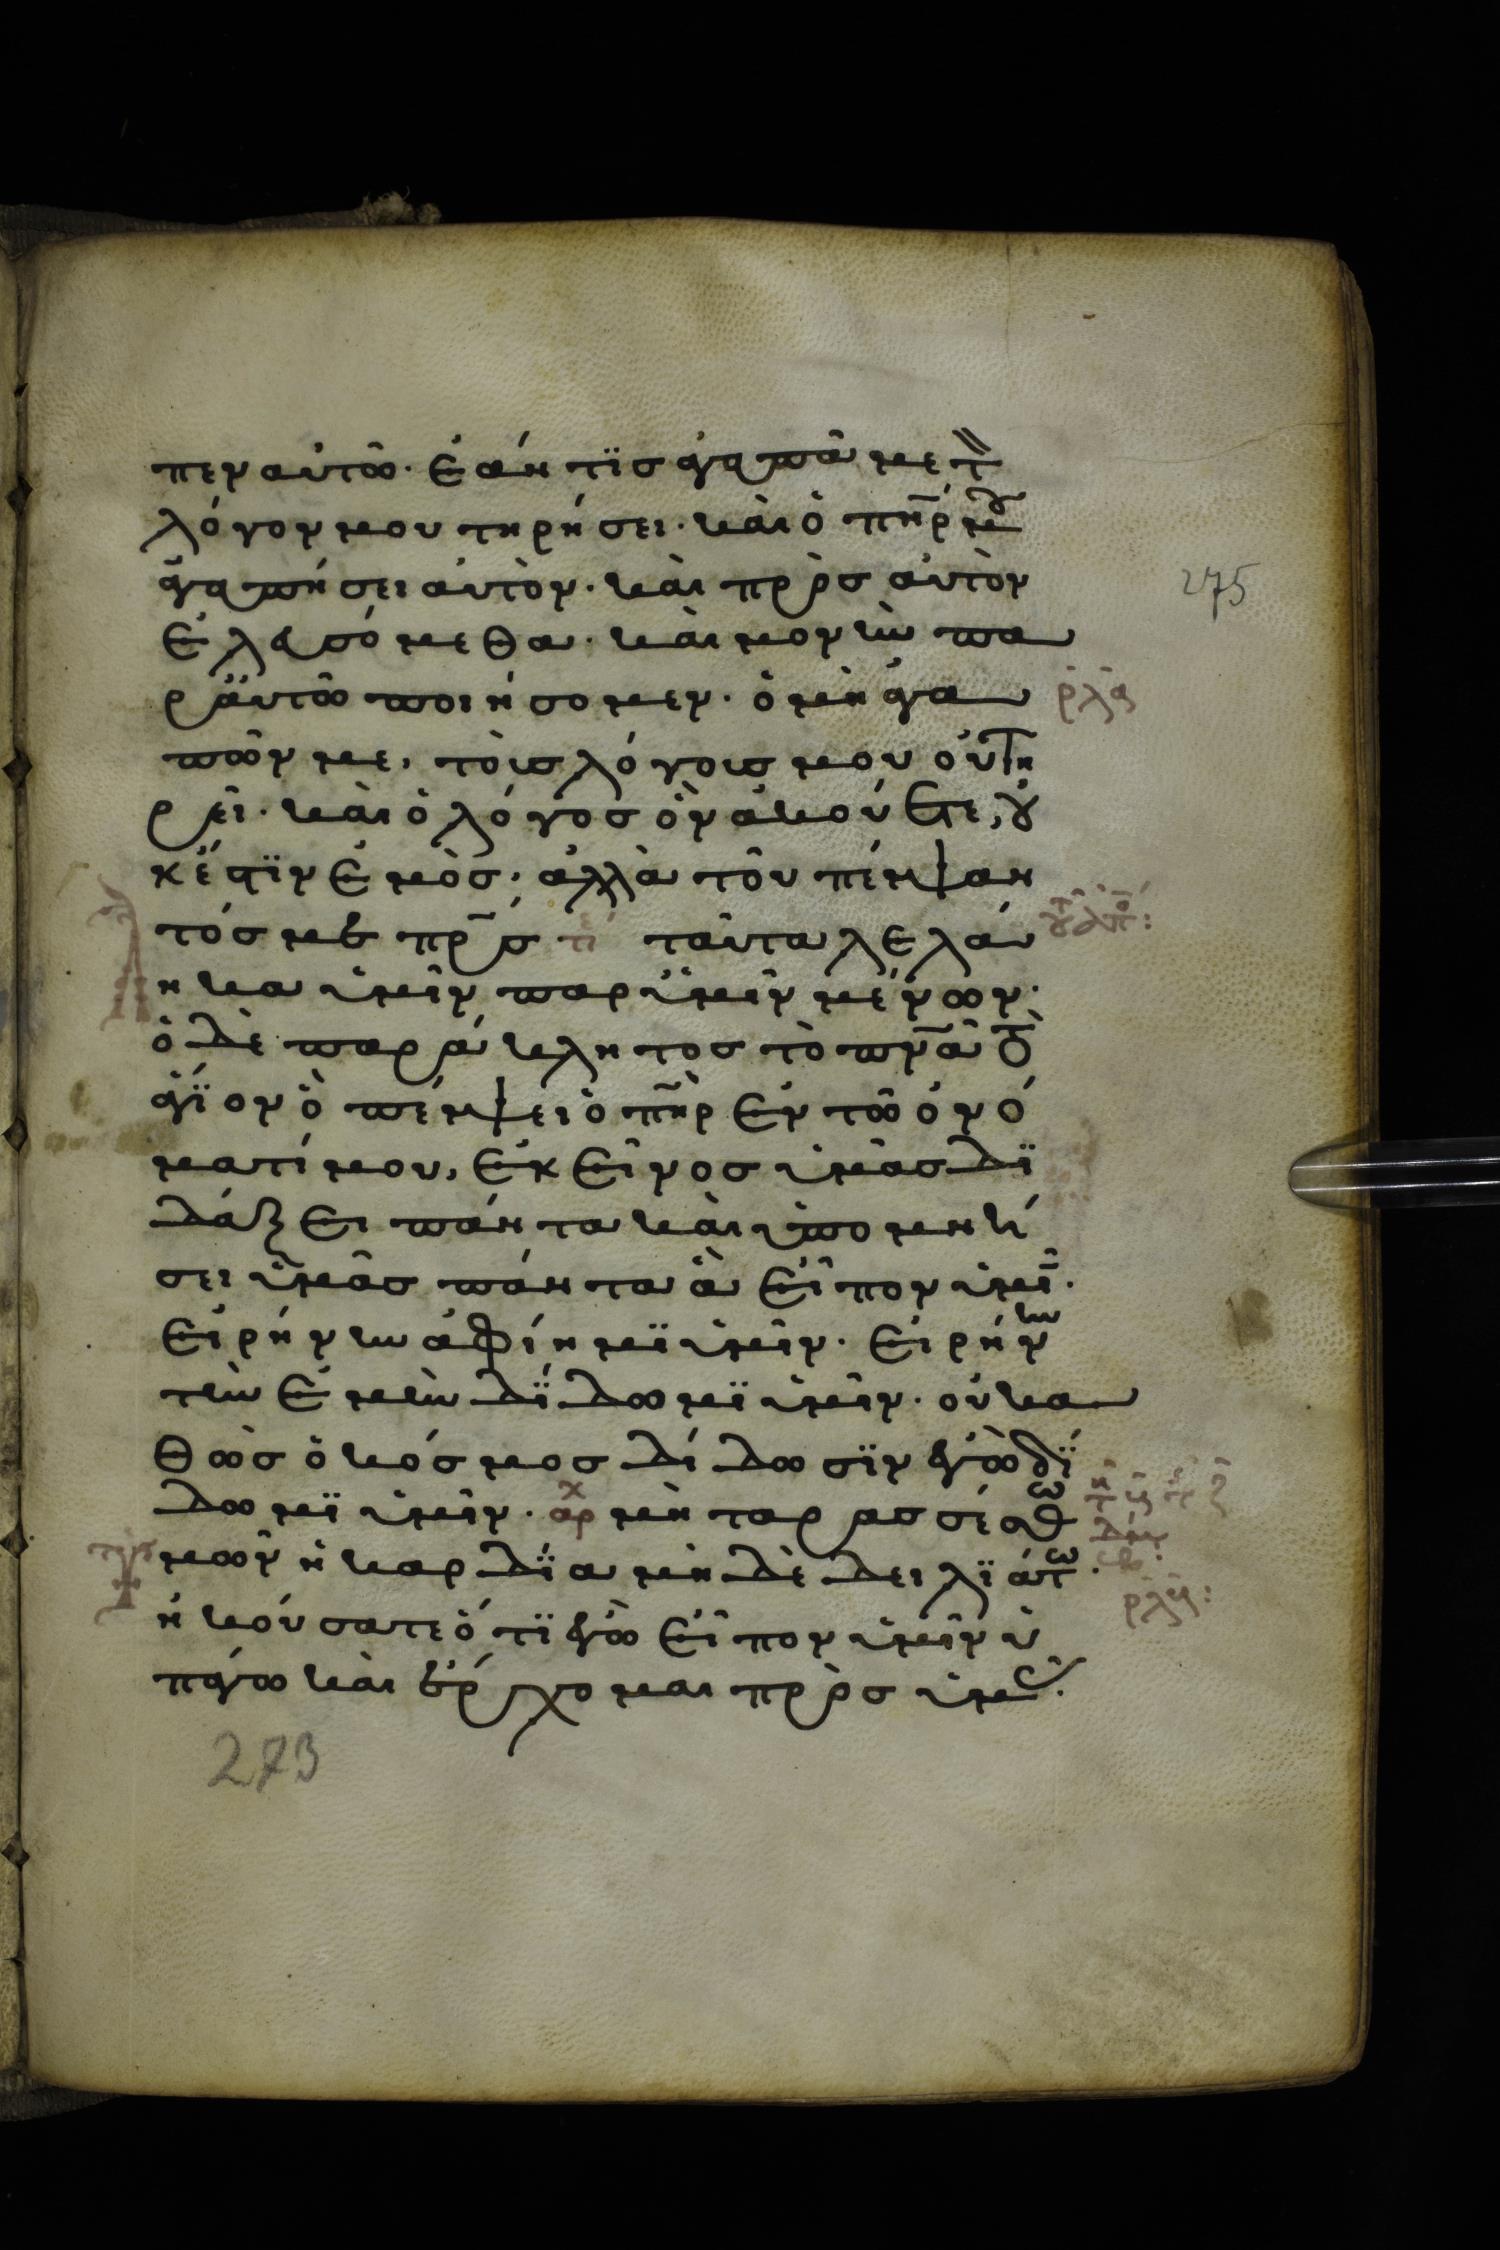 πεν αὐτῶ· ἐάν τϊς ἀγαπᾶ με τ
λόγον μου τηρήσει· καὶ ὁ πη̅ρ μου
ἀγαπήσει αὐτὸν· καὶ πρὸς αὐτὸν
ἐλευσόμεθα· καὶ μονὴν πα
ρ αὐτῶ ποιήσομεν· ὁ μὴ ἀγα
ρλα
πῶν με, τοὺς λόγους μου οὐ τη
ρεῖ· καὶ ὁ λόγος ὃν ἀκούετε, οὐ
κ ἔστϊν ἐμὸς· ἀλλὰ τοῦ πέμψαν
τός με πρ̅ς τε ταῦτα λελά
ηκα ὑμῖν παρ ὑμῖν μένων·
ὁ δὲ παράκλητος τὸ πν̅α τὸ
ἅγϊον ὃ πέμψει ὁ πη̅ρ ἐν τῶ ὀνό
ματί μου, ἐκεῖνος ὑμᾶς δϊ
δάξει πάντα καὶ ὑπομνή
σει ὑμᾶς πάντα ἃ εἶπον ὑμῖ·
εἰρήνην ἀφίημϊ ὑμῖν· εἰρήνην
τὴν ἐμὴν δίδωμϊ ὑμῖν· οὐ κα
θὼς ὁ κόσμος δίδωσϊν ἐγὼ δί
δωμϊ ὑμῖν· αρχ μὴ ταρασσέσθω
ὑμῶν ἡ καρδΐα μὴ δὲ δειλϊάτω·
ἠκούσατε ὅτϊ ἐγὼ εἶπον ὑμῖν ὑ
πάγω καὶ ἔρχομαι πρὸς ὑμᾶς·
275
273